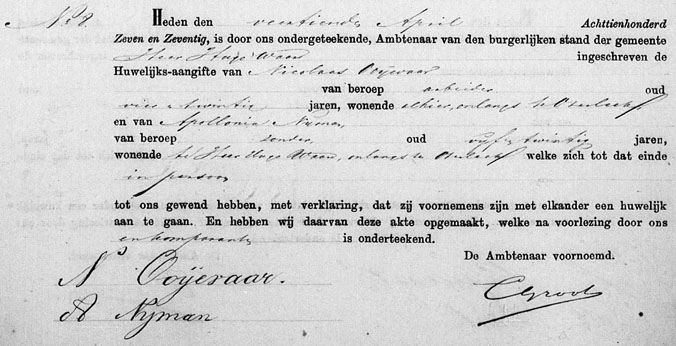 No 8 Heden den veertiende April Achttienhonderd
Zeven en Zeventig, is door ons ondergeteekende, Ambtenaar van den burgerlijken stand der gemeente
Heer Hugo Waard ingeschreven de
Huwelijks-aangifte van Nicolaas Ooijevaar
van beroep arbeider oud
vier twintig jaren, wonende alhier, onlangs te Oterleek
en van Apollonia Nyman,
van beroep zonder oud vyf twintig jaren,
wonende te Heer Hugo Waard, onlangs te Oterleek welke zich tot dat einde
in persoon
tot ons gewend hebben, met verklaring, dat zij voornemens zijn met elkander een huwelijk
aan te gaan. En hebben wij daarvan deze akte opgemaakt, welke na voorlezing door ons
en komparanten is onderteekend.
De Ambtenaar voornoemd.
N Ooijevaar.
CGroot
A Nyman